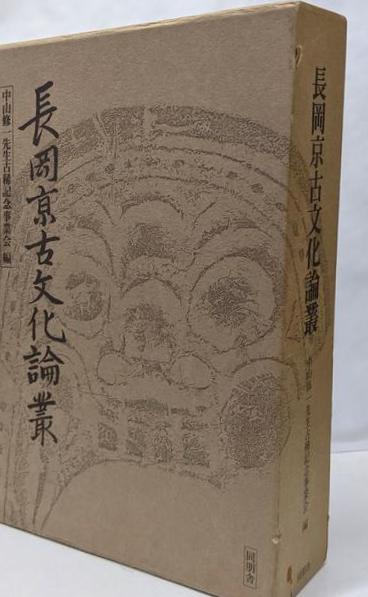 長岡京古文化論叢
中山修一先生古稀記念事業会 編
同明舎
長岡京古文化論叢
中山修一先生古稀記念事業会 編